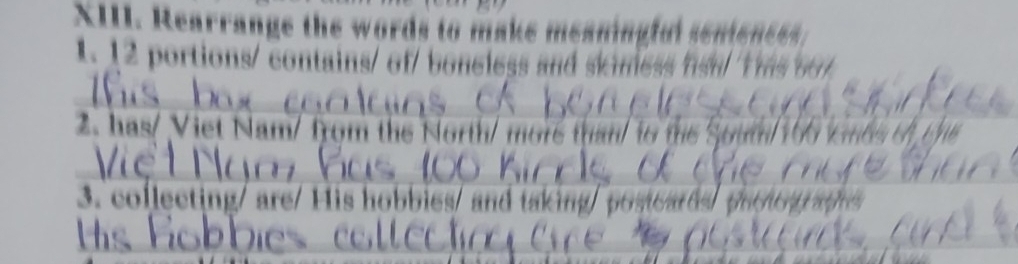 XIII. Rearrange the words to make meaningful sentences.
1. 12 portions/ contains/ of/ boneless and skinless fish/ This box
This box contains of boneless and skinless
2. has/ Viet Nam/ from the North/ more than/ to the South/100 kinds of che
Viet Nam has 100 kinds of che more than
3. collecting/ are/ His hobbies/ and taking/ postcards/ photographs
His hobbies collecting are postcards and